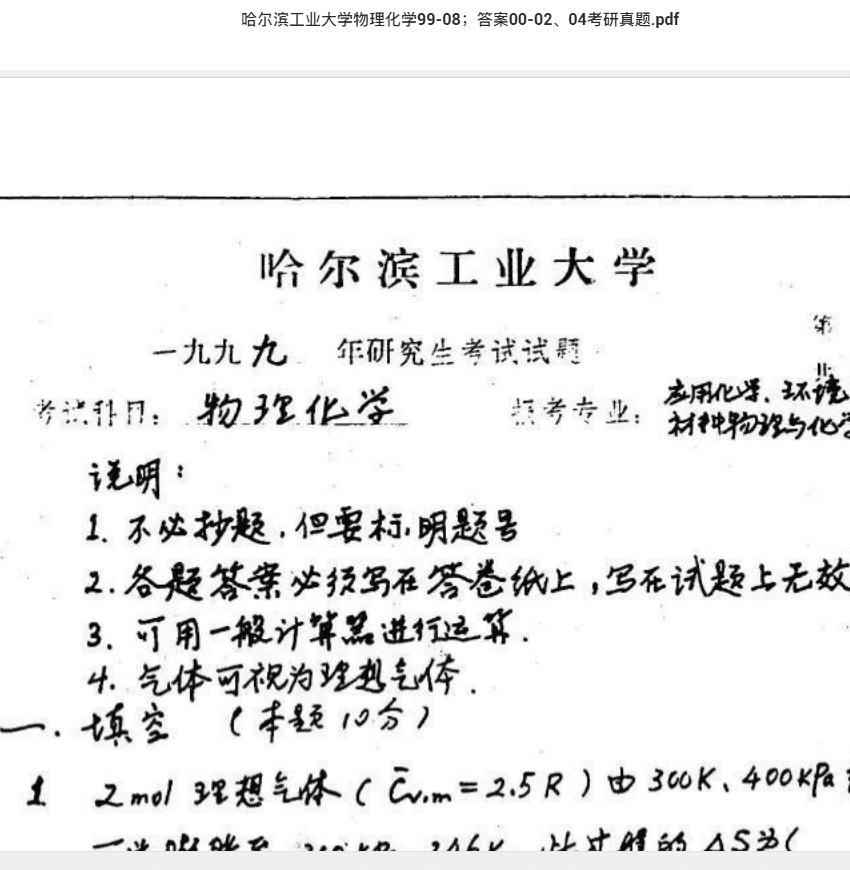 哈尔滨工业大学物理化学99-08；答案00-02、04考研真题.pdf
哈尔滨工业大学
第
一九九九 年研究生考试试题
考试科目：物理化学 报考专业：应用化学、环境
材料物理与化学
说明：
1. 不必抄题，但要标明题号
2. 各题答案必须写在答卷纸上，写在试题上无效
3. 可用一般计算器进行运算.
4. 气体可视为理想气体.
一. 填空 （本题10分）
1 2mol 理想气体（C̄v,m = 2.5R）由 300K、400kPa
此过程的 ΔS为(